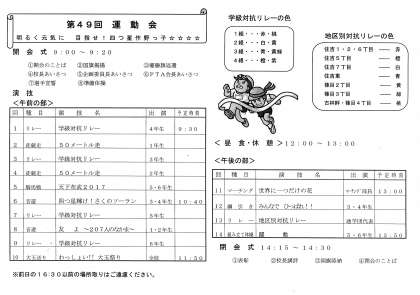 第49回 運動会
明るく元気に 目指せ！四つ星作野っ子☆☆☆☆
開 会 式 9：00～9：20
①開会のことば ②国旗掲揚 ③優勝旗返還
④校長あいさつ ⑤企画委員あいさつ ⑥PTA会長あいさつ
⑦選手宣誓 ⑧準備体操
演 技
＜午前の部＞
回 種目 演 技 名 出 演 予定時刻
1 リレー 学級対抗リレー 4年生 9：30
2 徒競走 50メートル走 1年生
3 リレー 学級対抗リレー 3年生
4 徒競走 50メートル走 2年生
5 騎馬戦 天下布武2017 5・6年生
6 3・4年生 10：40
7 友 よ
8 学級対抗リレー 5年生
9 リレー 学級対抗リレー 6年生
10 わっしょい!! 大玉祭り 全校 11：50
※前日の16：30以前の場所取りはご遠慮ください。
学級対抗リレーの色
1組・・・赤・桃
2組・・・白・黄
3組・・・青・黄緑
4組・・・橙・紫
地区別対抗リレーの色
住吉1・2・6丁目 赤
住吉5丁目 橙
住吉7丁目 白
住吉東 青
篠目2丁目 黄
篠目3丁目 緑
吉祥畔・篠目4丁目 桃
＜ 昼 食・休 憩 ＞ 12：00～13：00
＜午後の部＞
回 種 目 演 技 名 出 演 予定時刻
11 マーチング 世界に一つだけの花 13：00
12 綱 引 き みんなで ひっぱれ!! 2年生
13 リ レ ー 地区別対抗リレー 通学団代表
14 組み立て体操 5・6年生 13：50
閉 会 式 14：15～14：30
①表彰 ②校長講評 ③国旗降納 ④閉会のことば